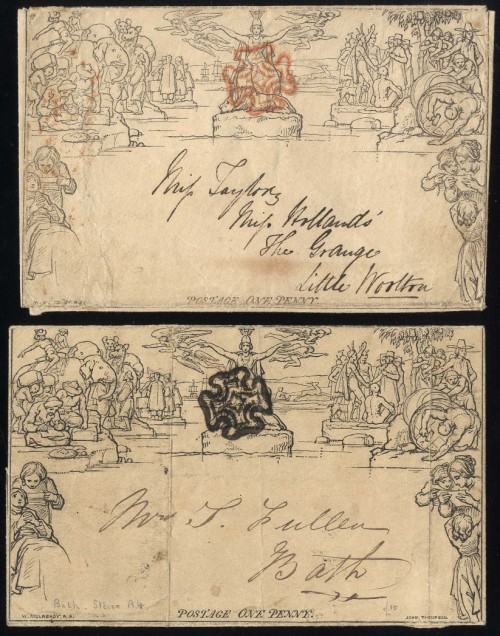 Miss Taylor,
Miss Hollands'
The Grange
Little Woolton
POSTAGE ONE PENNY.
Mrs T. Fuller
Bath
Bath
W. MULREADY R.A.
POSTAGE ONE PENNY.
JOHN THOMPSON